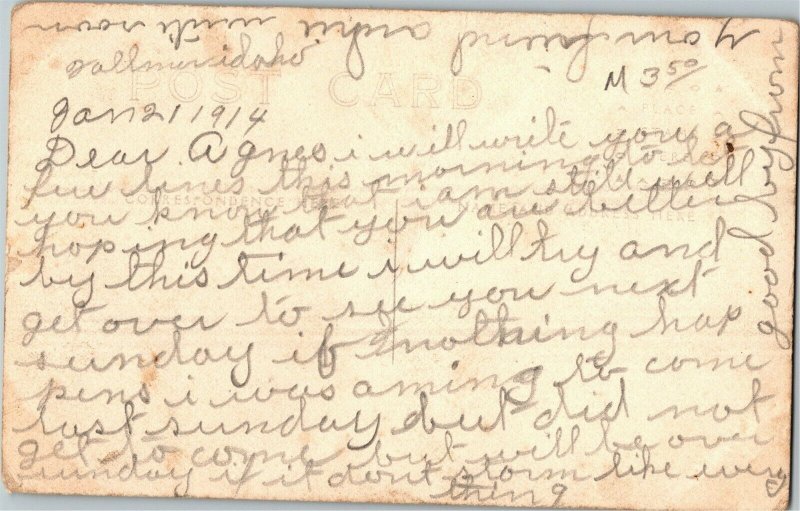 vollmer idaho
POST CARD
M 3 50
Jan 21 1914
Dear Agnes i will write you a
few lines this morning to let
you know that i am still well
CORRESPONDENCE HERE
hoping that you are better
by this time i will try and
get over to see you next
sunday if nothing hap
pens i was aming to come
last sunday but did not
get to come but will be over
sunday if it dont storm like every
thing
good by from
your friend
write soon